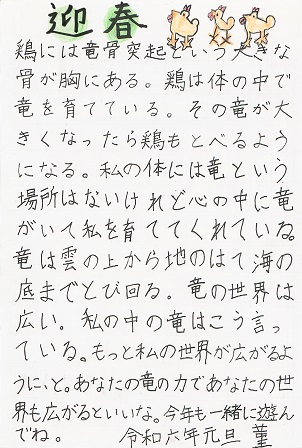 迎春
鶏には竜骨突起という大きな
骨が胸にある。鶏は体の中で
竜を育てている。その竜が大
きくなったら鶏もとべるよう
になる。私の体には竜という
場所はないけれど心の中に竜
がいて私を育ててくれている。
竜は雲の上から地のはて海の
底までとび回る。竜の世界は
広い。私の中の竜はこう言っ
ている。もっと私の世界が広がるよ
うに、と。あなたの竜の力であなたの世
界も広がるといいな。今年も一緒に遊ん
でね。 令和六年元旦 菫